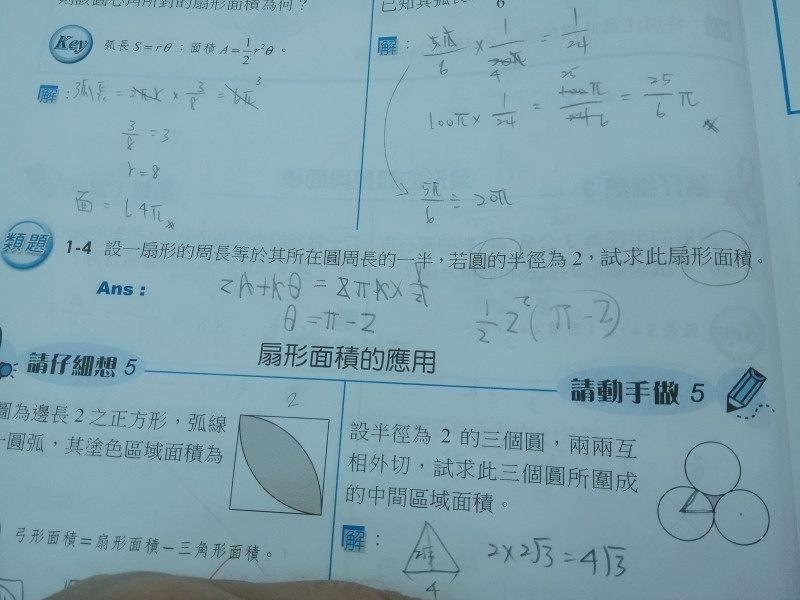 則該圓心角所對的扇形面積為何？
Key 弧長 S = rθ；面積 A = 1/2 r²θ。
解：弧長 = 2πr × 3/8 = 6π 3
3/8 = 3
r = 8
面 = 64π
已知其弧長 6
解：5π/6 × 1/20π 4 = 1/24
100π × 1/24 = 25 100π/24 6 = 25/6 π
5π/6 ÷ 20π
類題 1-4 設一扇形的周長等於其所在圓周長的一半，若圓的半徑為 2，試求此扇形面積。
Ans：
θ = π - 2
1/2 2²(π - 2)
扇形面積的應用
請仔細想 5
圖為邊長 2 之正方形，弧線
圓弧，其塗色區域面積為
2
弓形面積＝扇形面積－三角形面積。
請動手做 5
設半徑為 2 的三個圓，兩兩互
相外切，試求此三個圓所圍成
的中間區域面積。
解：
2√3
4
2 × 2√3 = 4√3